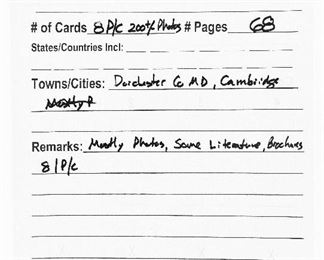 # of Cards 8 P/c 200+ Photos # Pages 68
States/Countries Incl:
Towns/Cities: Dorchester Co MD, Cambridge
Mostly P
Remarks: Mostly Photos, Some Literature, Brochures
81 P/c